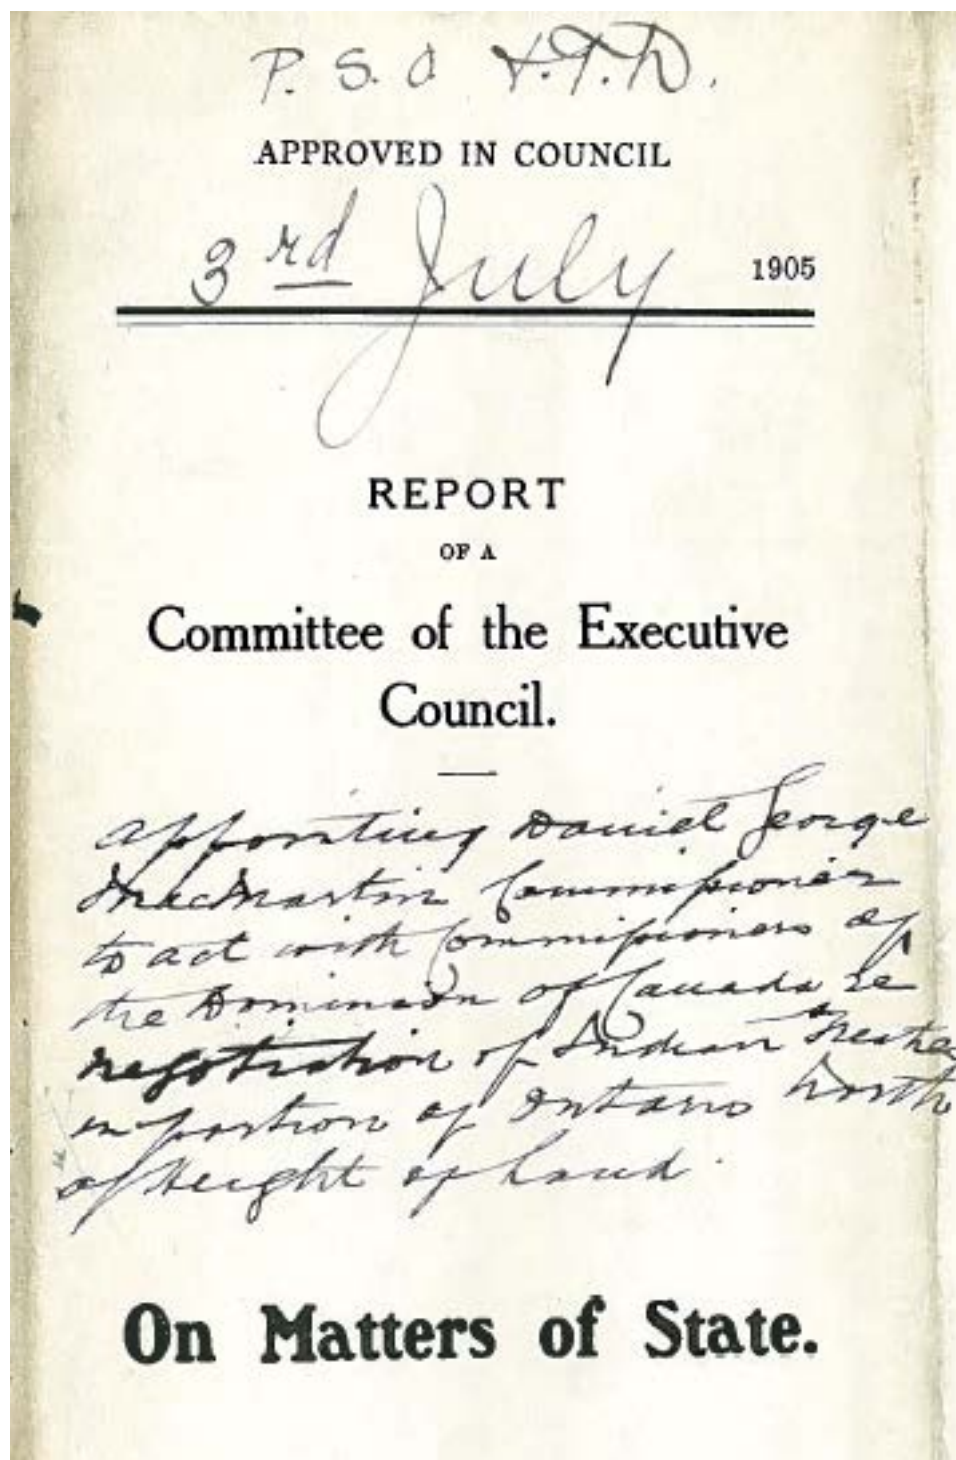 P. S. O
APPROVED IN COUNCIL
3rd July 1905
REPORT
OF A
Committee of the Executive
Council.
Appointing Daniel George
MacMartin Commissioner
to act with Commissioners of
the Dominion of Canada re
negotiation of Indian Treaties
in portion of Ontario North
of Height of Land.
On Matters of State.